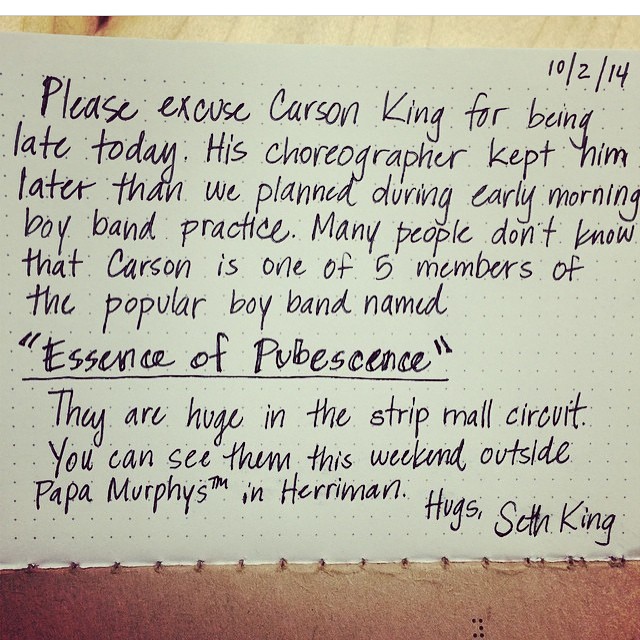 10/2/14
Please excuse Carson King for being
late today. His choreographer kept him
later than we planned during early morning
boy band practice. Many people don't know
that Carson is one of 5 members of
the popular boy band named
"Essence of Pubescence"
They are huge in the strip mall circuit.
You can see them this weekend outside
Papa Murphys™ in Herriman.
Hugs, Seth King